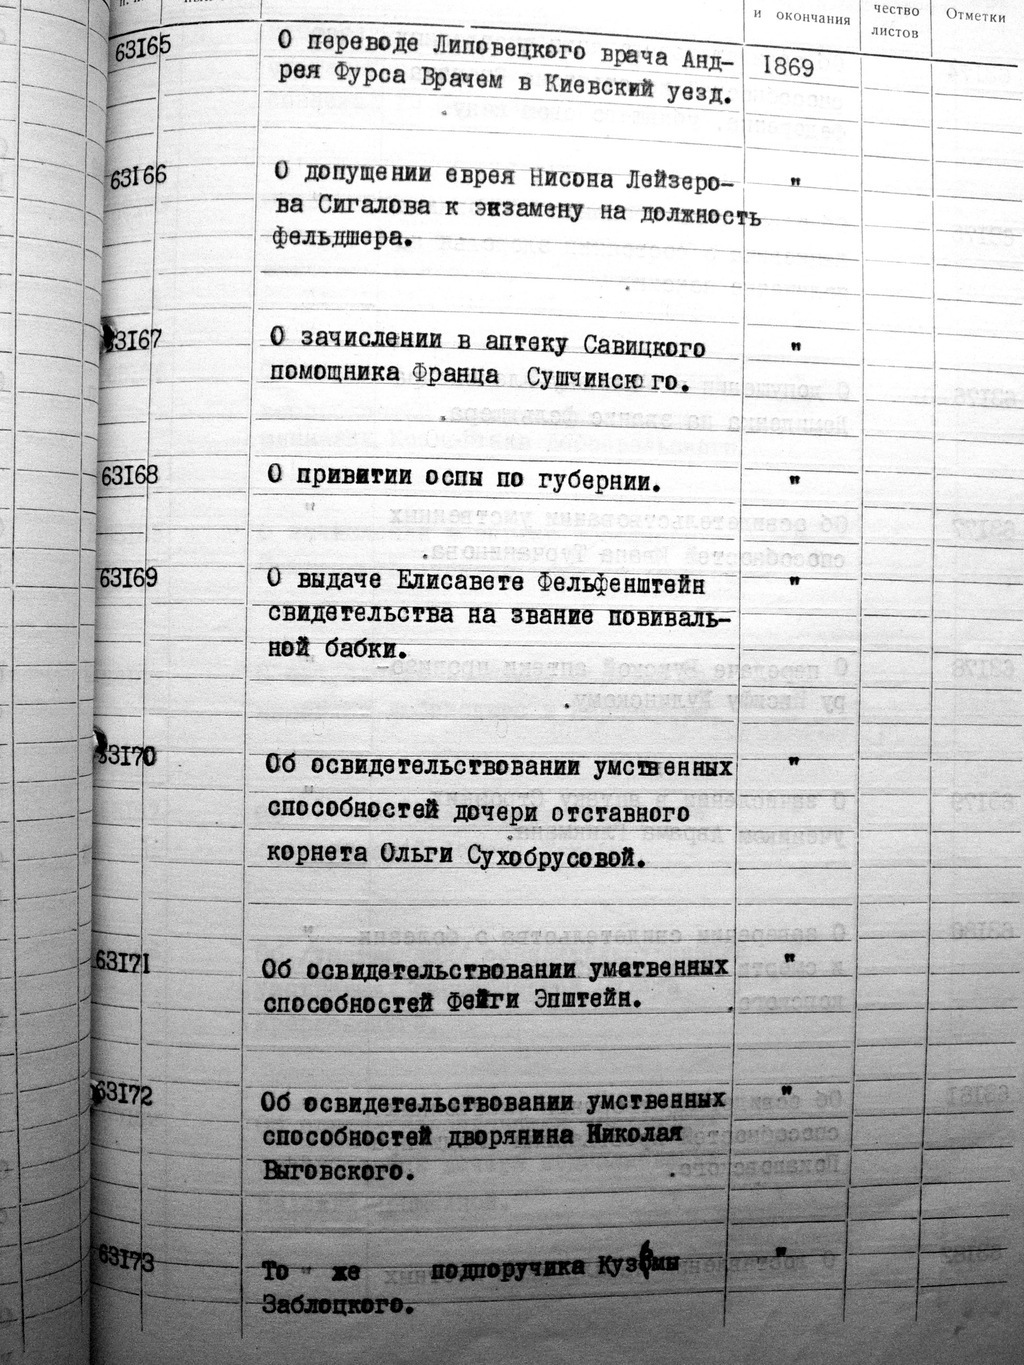 и окончания
чество
листов
Отметки
63I65
О переводе Липовецкого врача Анд-
рея Фурса Врачем в Киевский уезд.
I869
63I66
О допущении еврея Нисона Лейзеро-
ва Сигалова к экзамену на должность
фельдшера.
"
3I67
О зачислении в аптеку Савицкого
помощника Франца Сушчинско го.
"
63I68
О привитии оспы по губернии.
"
63I69
О выдаче Елисавете Фельфенштейн
свидетельства на звание повиваль-
ной бабки.
"
3I70
Об освидетельствовании умственных
способностей дочери отставного
корнета Ольги Сухобрусовой.
"
63I7I
Об освидетельствовании уматвенных
способностей Фейги Эпштейн.
"
63I72
Об освидетельствовании умственных
способностей дворянина Николая
Выговского.
"
63I73
То " же подпоручика Кузьмы
Заблоцкого.
"